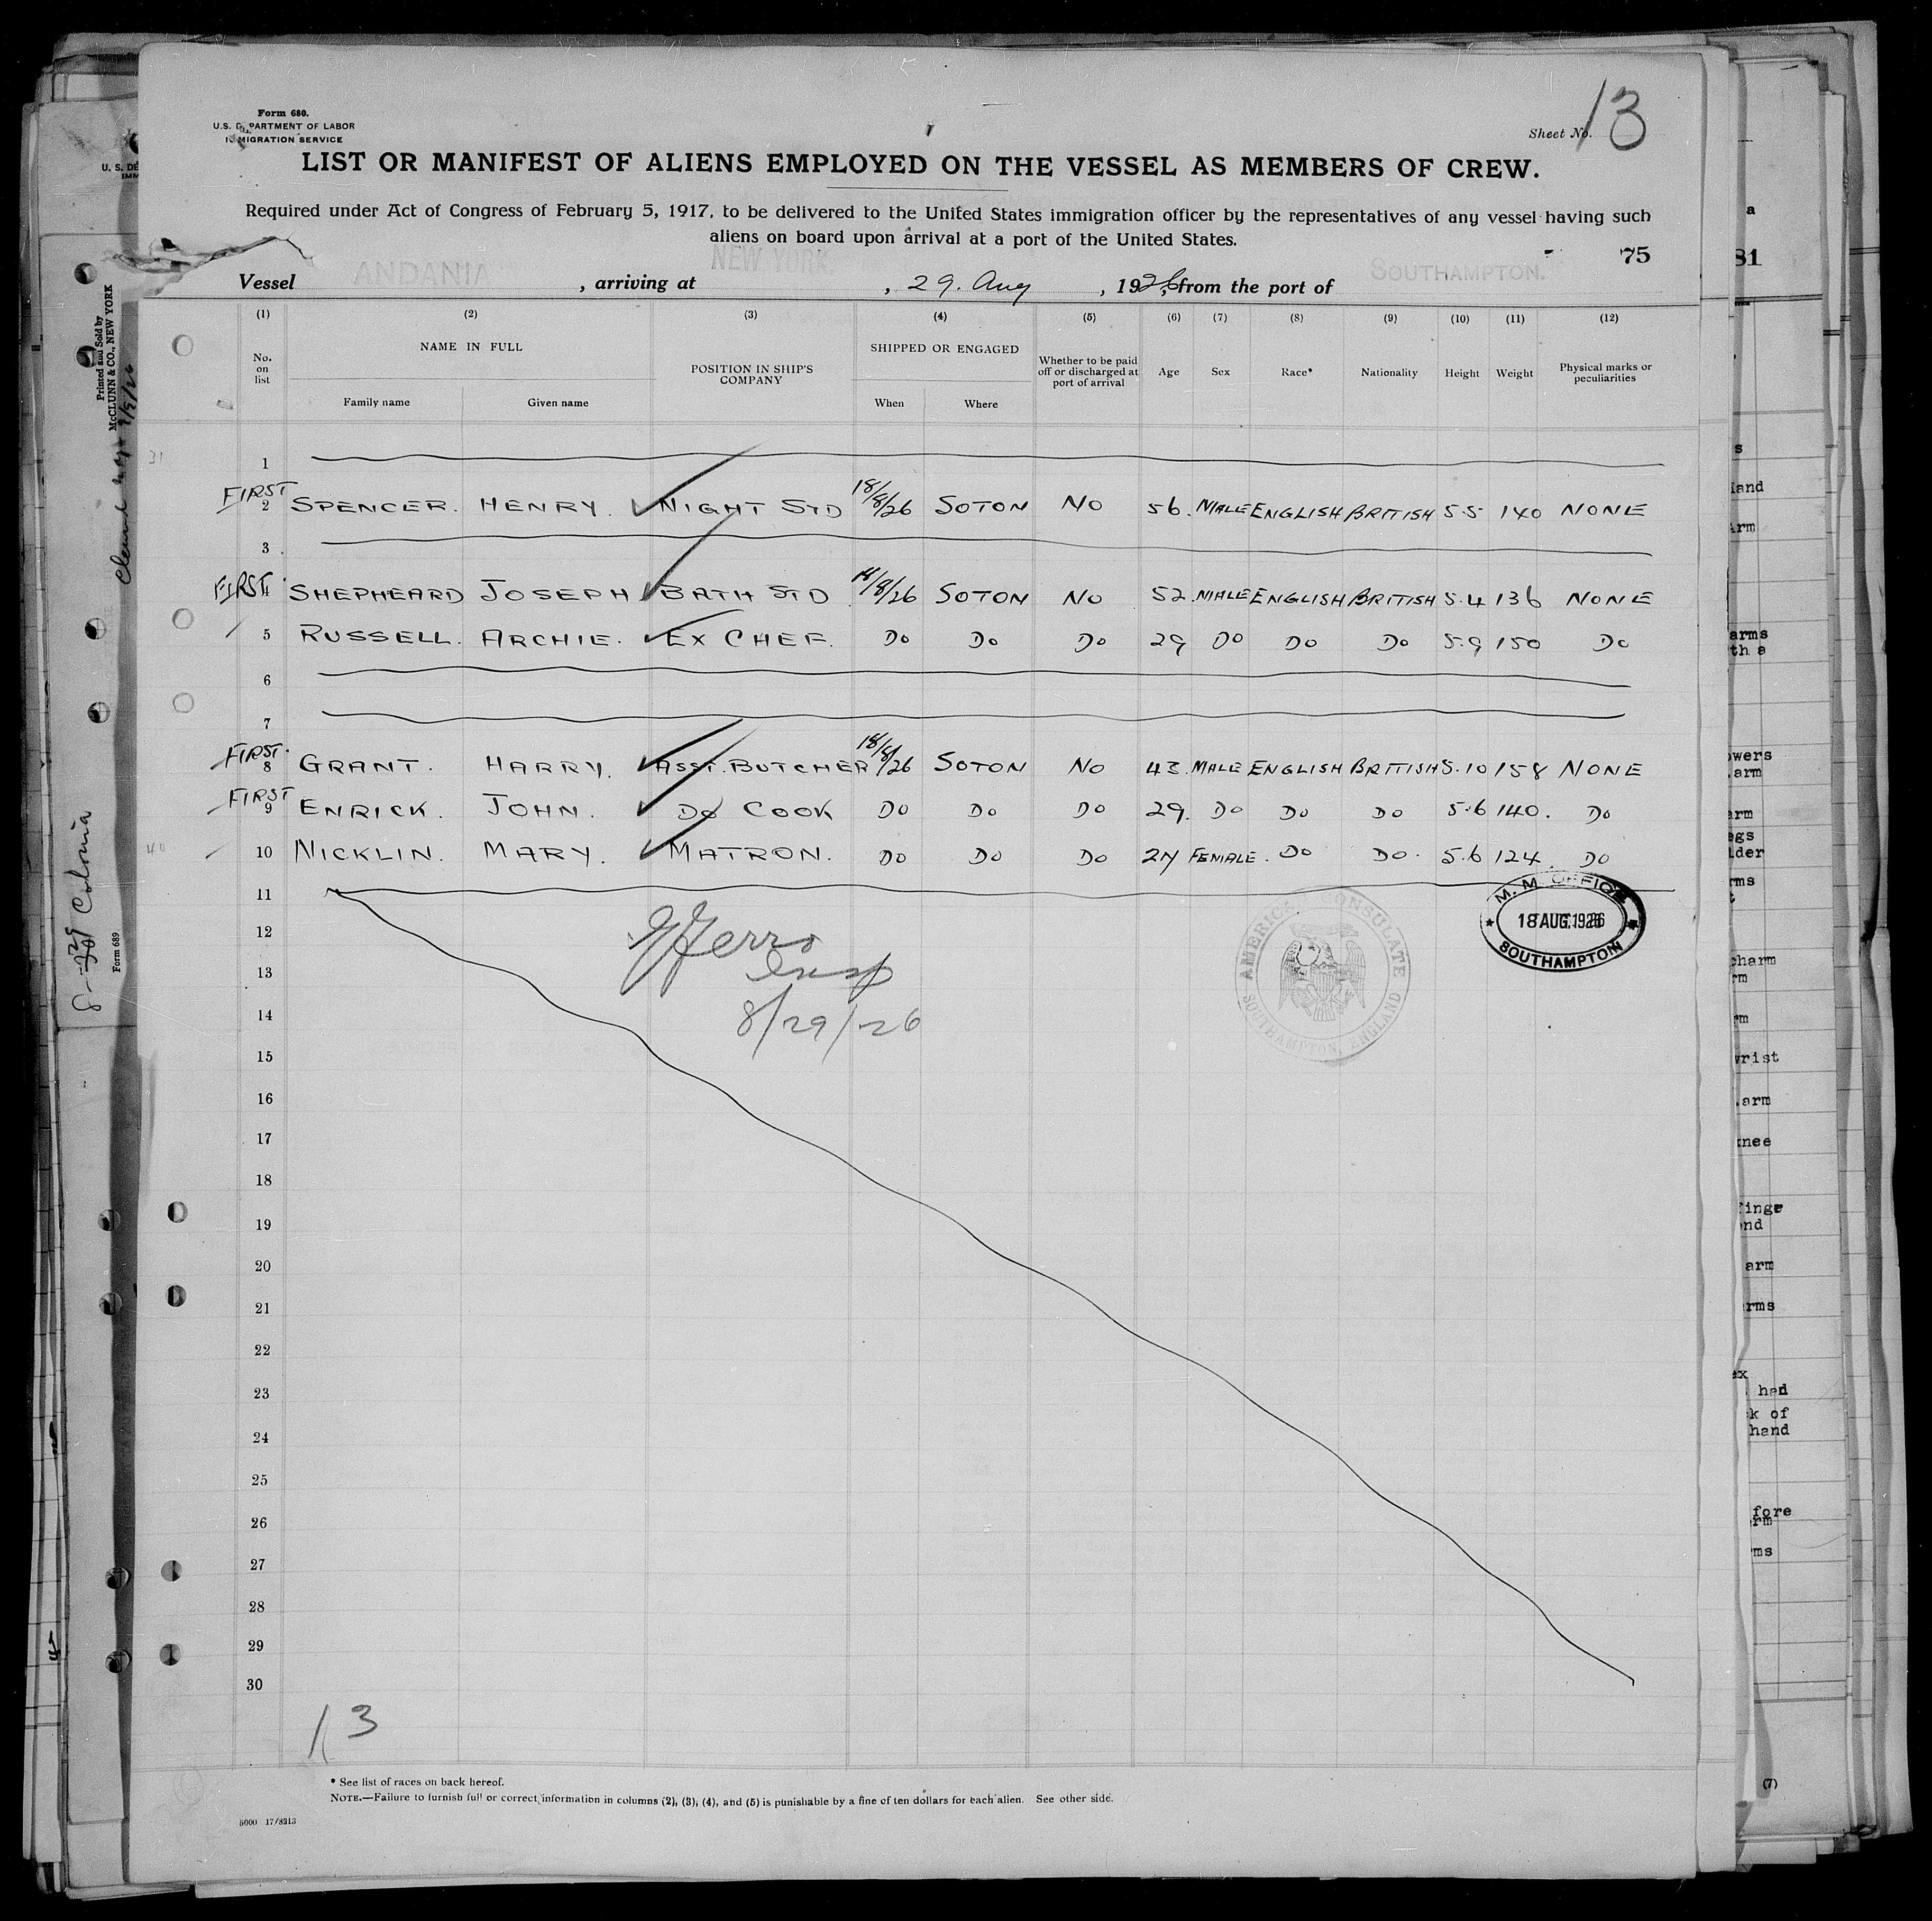 Form 680.
U.S. DEPARTMENT OF LABOR
IMMIGRATION SERVICE
Sheet No. 13
LIST OR MANIFEST OF ALIENS EMPLOYED ON THE VESSEL AS MEMBERS OF CREW.
Required under Act of Congress of February 5, 1917, to be delivered to the United States immigration officer by the representatives of any vessel having such
aliens on board upon arrival at a port of the United States.
75
Vessel ANDANIA, arriving at NEW YORK., 29. Aug, 1926, from the port of SOUTHAMPTON.
(1) (2) (3) (4) (5) (6) (7) (8) (9) (10) (11) (12)
No. on list NAME IN FULL Family name Given name POSITION IN SHIP'S COMPANY SHIPPED OR ENGAGED When Where Whether to be paid off or discharged at port of arrival Age Sex Race* Nationality Height Weight Physical marks or peculiarities
1
FIRST 2 SPENCER. HENRY. NIGHT STD 18/8/26 SOTON NO 56. MALE ENGLISH BRITISH 5.5 140 NONE
3
FIRST 4 SHEPHEARD JOSEPH BATH STD 18/8/26 SOTON NO 52 MALE ENGLISH BRITISH 5.4 136 NONE
5 RUSSELL. ARCHIE. EX CHEF. DO DO DO 29 DO DO DO 5.9 150 DO
6
7
FIRST 8 GRANT. HARRY. ASST. BUTCHER 18/8/26 SOTON NO 43 MALE ENGLISH BRITISH 5.10 158 NONE
FIRST 9 ENRICK. JOHN. DO COOK DO DO DO 29. DO DO DO 5.6 140. DO
10 NICKLIN. MARY. MATRON. DO DO DO 27 FEMALE. DO DO. 5.6 124. DO
11
12
13
14
15
16
17
18
19
20
21
22
23
24
25
26
27
28
29
30
Insp
8/29/26
AMERICAN CONSULATE
SOUTHAMPTON, ENGLAND
M. M. OFFICE
18 AUG. 1926
SOUTHAMPTON
13
* See list of races on back hereof.
NOTE.—Failure to furnish full or correct information in columns (2), (3), (4), and (5) is punishable by a fine of ten dollars for each alien. See other side.
5000 17/8213
Printed and Sold by
McCLUNN & CO., NEW YORK
Form 689
U. S. DE
IMM
31
40
81
a
s
arms
th a
arm
charm
wrist
arm
had
k of
hand
fore
(7)